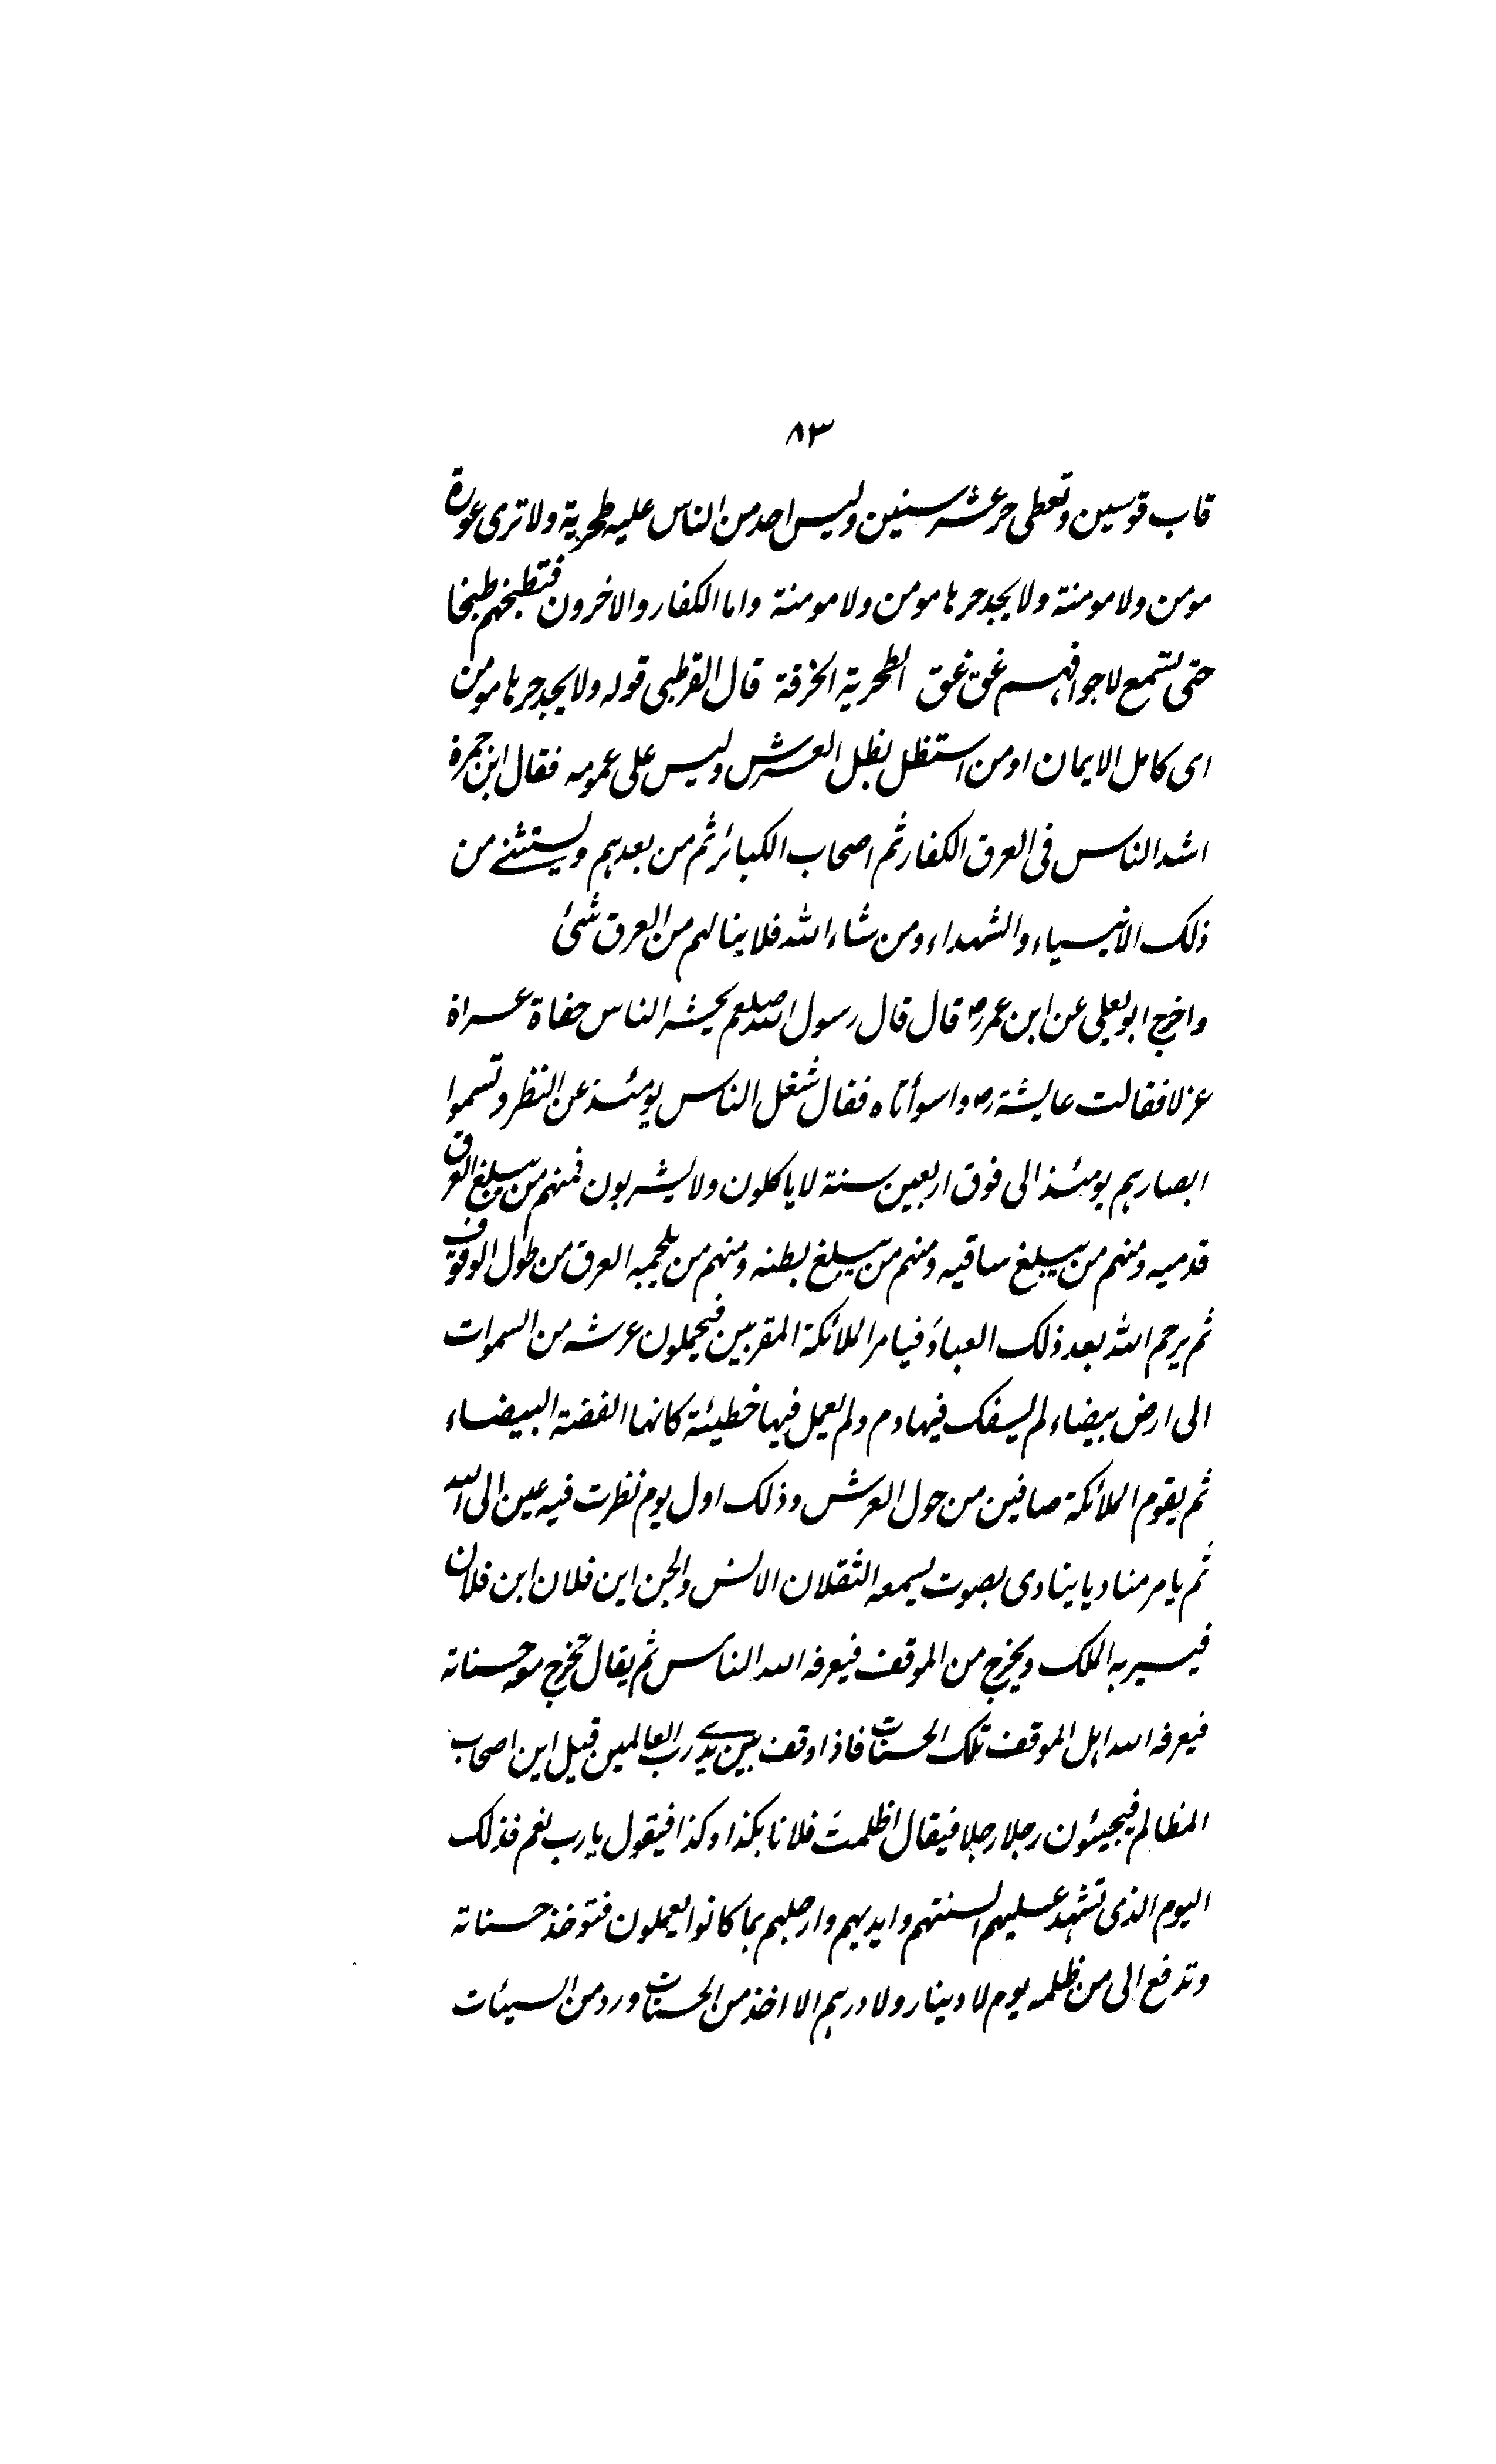 ٨٣
قاب قوسين وتعطى حر عشر سنين وليس احد من الناس عليه طحرية ولا ترى عورة
مومن ولا مومنة ولا يجد حرها مومن ولا مومنة واما الكفار والاخرون فتطبخهم طبخا
حتى تسمع لاجوافهم غق غق الطحرية الخرقة قال القرطبى قوله ولا يجد حرها مومن
اى كامل الايمان او من استظل بظل العرش وليس على عمومه فقال ابن جمرة
اشد الناس فى العرق الكفار ثم اصحاب الكبائر ثم من بعدهم ويستثنے من
ذلك الانبياء والشهداء ومن شاء الله فلا ينالهم من العرق شئ
واخرج ابو يعلى عن ابن عمرؓ قال قال رسول الله صلعم يحشر الناس حفاة عراة
عزلا فقالت عايشةؓ واسوأتاه فقال شغل الناس يومئذ عن النظر وتسموا
ابصارهم يومئذ الى فوق اربعين سنة لا ياكلون ولا يشربون فمنهم من يبلغ العرق
قدميه ومنهم من يبلغ ساقيه ومنهم من يبلغ بطنه ومنهم من يلجمه العرق من طول الوقوف
ثم يرحم الله بعد ذلك العبادَ فيامر الملائكة المقربين فيحملون عرشه من السموات
الى ارض بيضاء لم يسفك فيها دم ولم يعمل فيها خطيئة كانها الفضة البيضاء
ثم يقوم الملائكة صافين من حول العرش وذلك اول يوم نظرت فيه عين الى الله
ثم يامر مناديا ينادى بصوت يسمعه الثقلان الانس والجن اين فلان ابن فلان
فيسير به الملك ويخرج من الموقف فيعرفه الله الناس ثم يقال تخرج معه حسناته
فيعرفه الله اهل الموقف تلك الحسنات فاذا وقف بين يدے رب العالمين قيل اين اصحاب
المظالم فيجيئون رجلا رجلا فيقال اظلمتَ فلانا بكذا وكذا فيقول يا رب نعم فذلك
اليوم الذى تشهد عليهم السنتهم وايديهم وارجلهم بما كانوا يعملون فتوخذ حسناته
وتدفع الى من ظلمه يوم لا دينار ولا درهم الا اخذ من الحسنات ورد من السيئات